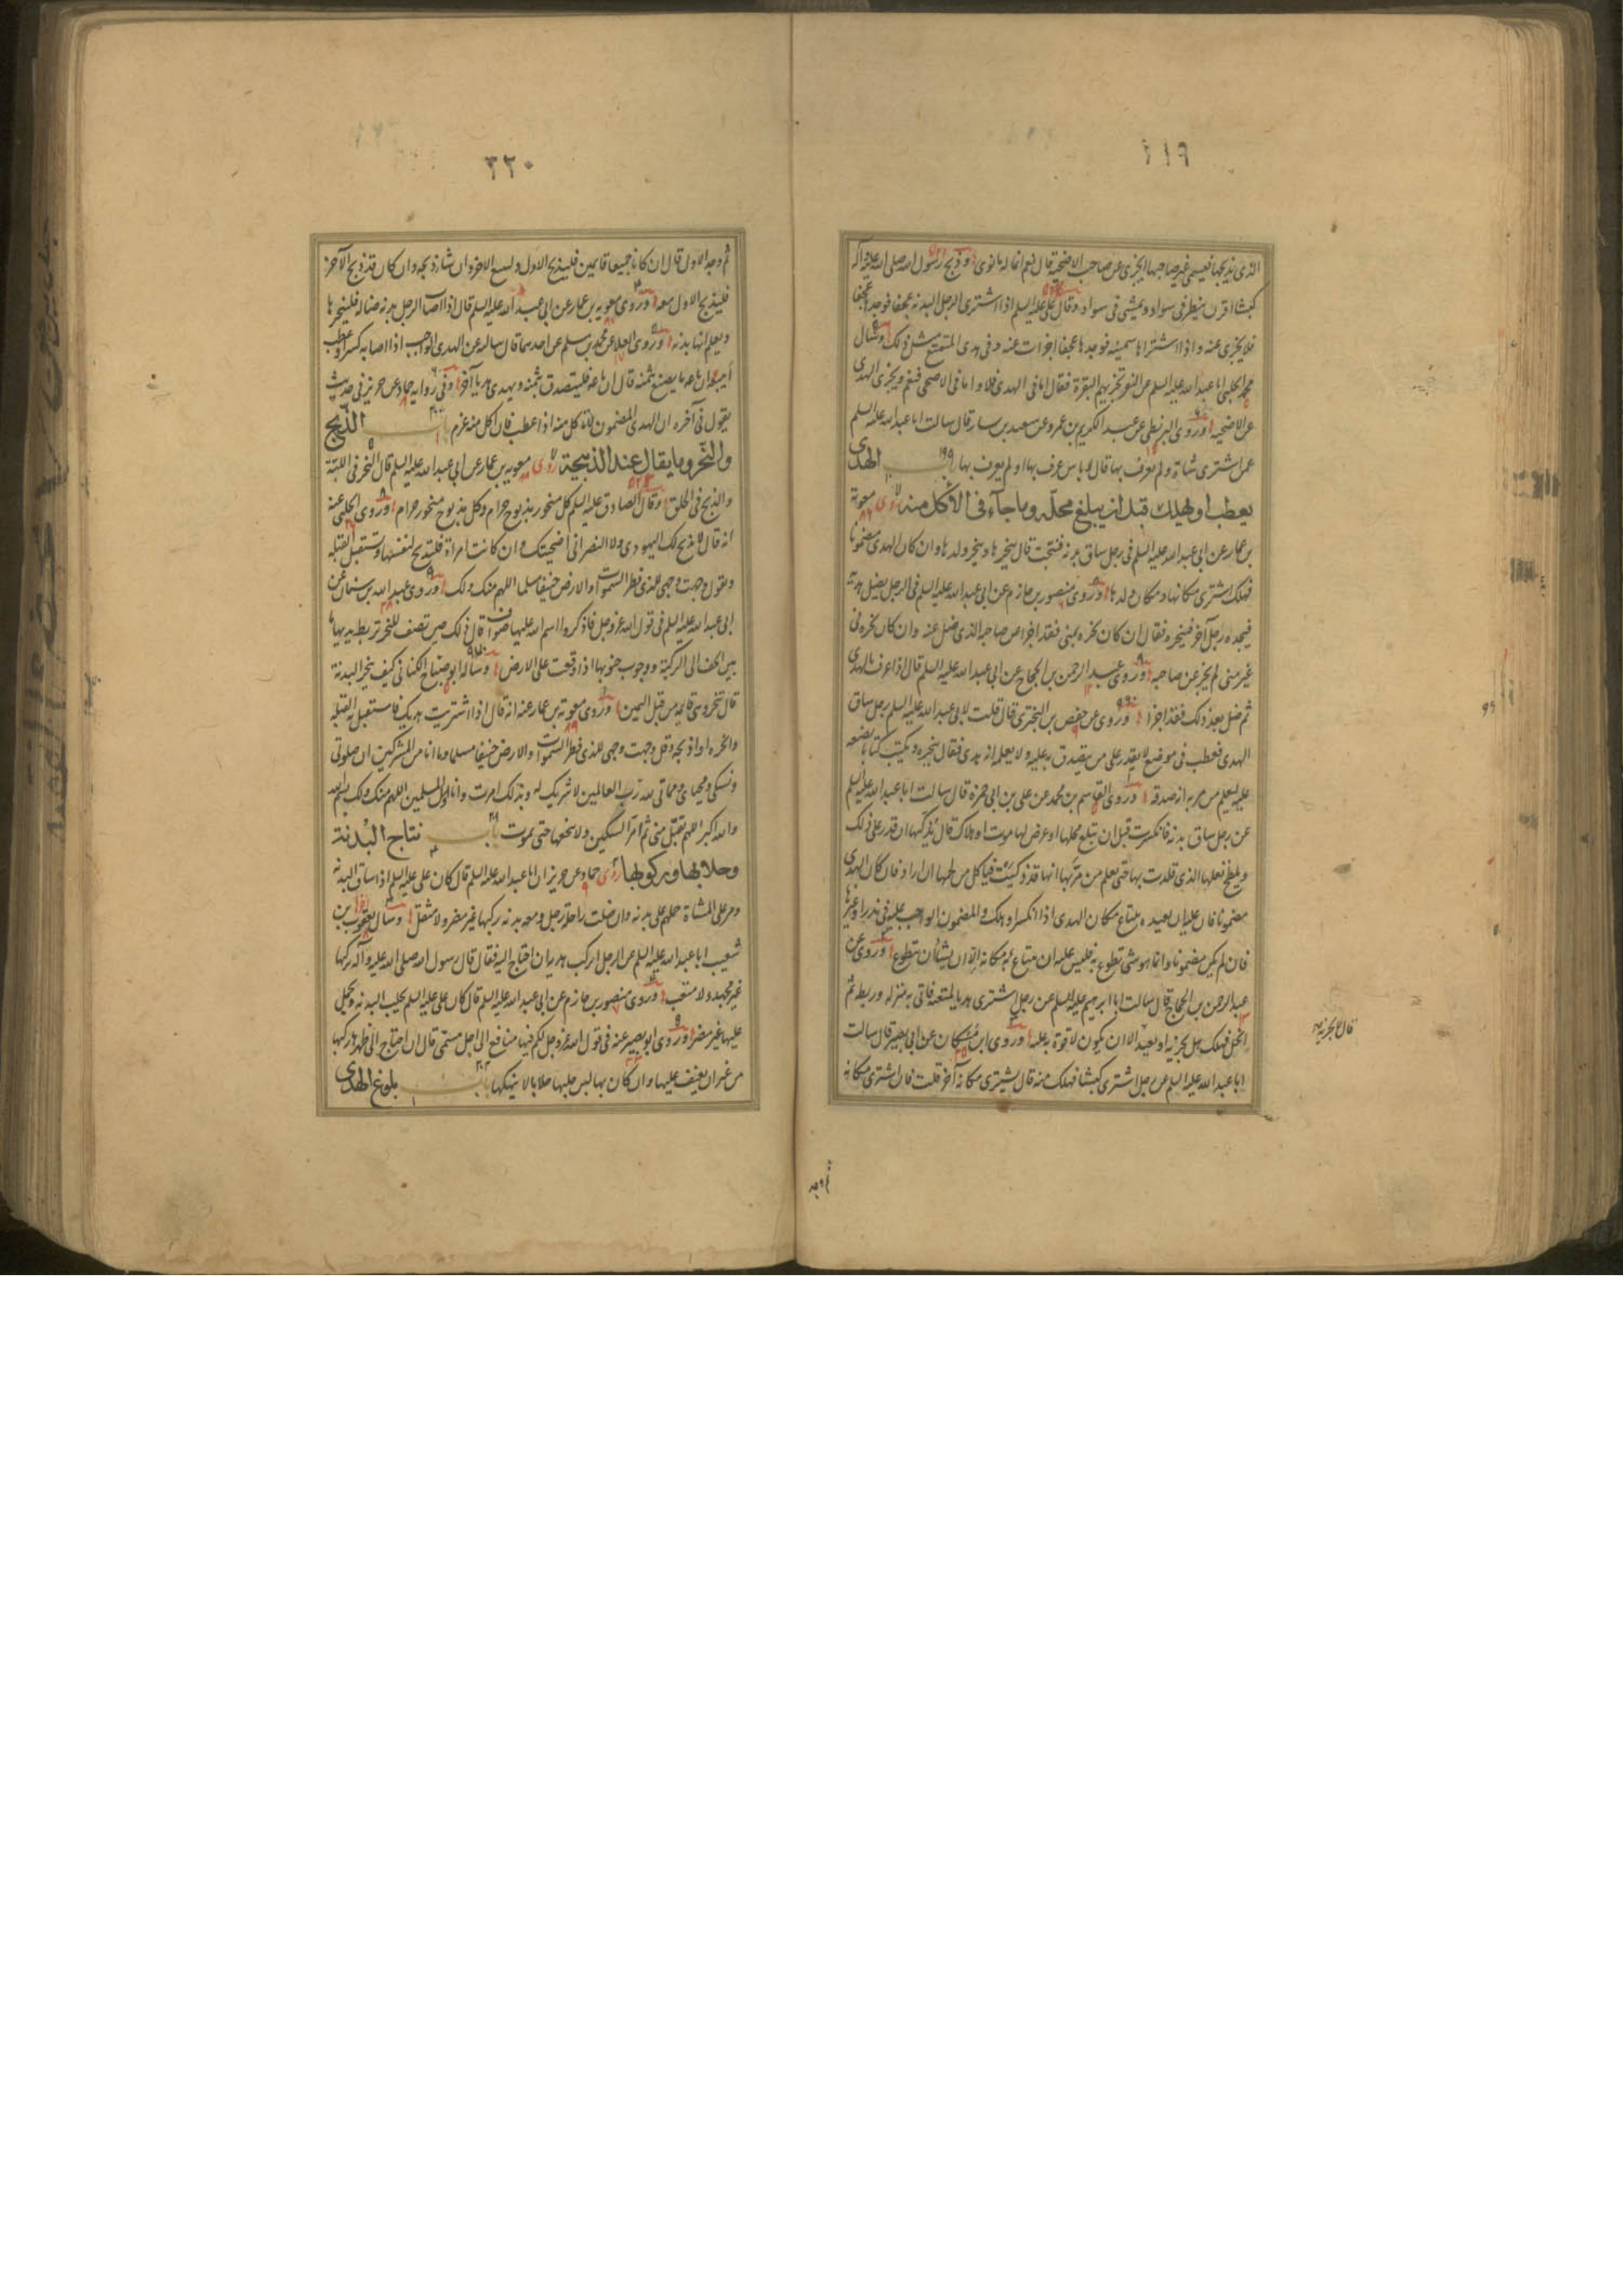 ٦١٩
الذى يذبحها فيسمى غير صاحبها ايجزى عن صاحب الاضحية قال نعم انما له ما نوى وذبح رسول الله صلى الله عليه وآله
كبشا اقرن ينظر فى سواد ويمشى فى سواد وقال على عليه السلم اذا اشترى الرجل البدنة عجفا فوجدها عجفا
فلا يجزى عنه واذا اشتراها سمينة فوجدها عجفا اجزات عنه وفى هدى المتمتع مثل ذلك وسال
محمد الحلبى ابا عبد الله عليه السلم عن النفر تجزيهم البقرة فقال اما فى الهدى فلا واما فى الاضحى فنعم ويجزى الهدى
عن الاضحية وروى البزنطى عن عبد الكريم بن عمرو عن سعيد بن يسار قال سالت ابا عبد الله عليه السلم
عمن اشترى شاة ولم يعرف بها قال لا باس عرف بها او لم يعرف بها باب الهدى
يعطب او يهلك قبل ان يبلغ محله وما جآء فى الاكل منه روى معوية
بن عمار عن ابى عبد الله عليه السلم فى رجل ساق بدنة فنتجت قال ينحرها وينحر ولدها وان كان الهدى مضمونا
فهلك اشترى مكانها ومكان ولدها وروى منصور بن حازم عن ابى عبد الله عليه السلم فى الرجل يضل هديه
فيجده رجل آخر فينحره فقال ان كان نحره بمنى فقد اجزا عن صاحبه الذى ضل عنه وان كان نحره فى
غير منى لم يجز عن صاحبه وروى عبد الرحمن بن الحجاج عن ابى عبد الله عليه السلم قال اذا عرف بالهدى
ثم ضل بعد ذلك فقد اجزا وروى عن حفص بن البخترى قال قلت لابى عبد الله عليه السلم رجل ساق
الهدى فعطب فى موضع لا يقدر على من يتصدق به عليه ولا يعلم انه هدى فقال ينحره ويكتب كتابا يضعه
عليه ليعلم من مر به انه صدقة وروى القاسم بن محمد عن على بن ابى حمزة قال سالت ابا عبد الله عليه السلم
عن رجل ساق بدنة فانكسرت قبل ان تبلغ محلها او عرض لها موت او هلاك قال يذكيها ان قدر على ذلك
ويلطخ نعلها الذى قلدت بها حتى يعلم من مر بها انها قد ذكيت فياكل من لحمها ان اراد فان كان الهدى
مضمونا فان عليه ان يعيده يبتاع مكان الهدى اذا انكسر او هلك والمضمون الواجب عليه فى نذر او غيره
فان لم يكن مضمونا وانما هو شى تطوع به فليس عليه ان يبتاع مكانه الا ان يشاء ان يتطوع وروى عن
عبد الرحمن بن الحجاج قال سالت ابا ابرهيم عليه السلم عن رجل اشترى هديا لمتعته فاتى به منزله وربطه ثم
انحل فهلك هل يجزيه او يعيد الا ان يكون لا قوة به عليه وروى ابن مسكان عن ابى بصير قال سالت
قال لا يجزيه
ابا عبد الله عليه السلم عن رجل اشترى كبشا فهلك منه قال يشترى مكانه آخر قلت فان اشترى مكانه
ثم وجد
٣٢٠
ثم وجد الاول قال ان كانا جميعا قايمين فليذبح الاول وليبع الاخر وان شاء ذبحه وان كان قد ذبح الآخر
فليذبح الاول معه وروى معوية بن عمار عن ابى عبد الله عليه السلم قال اذا اصاب الرجل بدنة ضالة فلينحرها
ويعلم انها بدنة وروى العلا عن محمد بن مسلم عن احدهما قال سالته عن الهدى الواجب اذا اصابه كسر او عطب
ايبيعه وان باعه ما يصنع بثمنه قال ان باعه فليتصدق بثمنه ويهدى هديا آخر وفى رواية حماد عن حريز فى حديث
يقول فى آخره ان الهدى المضمون لا تاكل منه اذا عطب فان اكل منه غرم باب الذبح
والنحر وما يقال عند الذبيحة روى معوية بن عمار عن ابى عبد الله عليه السلم قال النحر فى اللبة
والذبح فى الحلق وقال الصادق عليه السلم كل منحور مذبوح حرام وكل مذبوح منحور حرام وروى الحلبى عنه
انه قال لا يذبح لك اليهودى ولا النصرانى اضحيتك وان كانت امراة فلتذبح لنفسها وتستقبل القبلة
وتقول وجهت وجهى للذى فطر السموات والارض حنيفا مسلما اللهم منك ولك وروى عبد الله بن سنان عن
ابى عبد الله عليه السلم فى قول الله عز وجل فاذكروا اسم الله عليها صواف قال ذلك حين تصف للنحر تربط يديها ما
بين الخف الى الركبة ووجوب جنوبها اذا وقعت على الارض وساله ابو صباح الكنانى كيف ينحر البدنة
قال تنحر وهى قايمة من قبل اليمين وروى معوية بن عمار عنه انه قال اذا اشتريت هديك فاستقبل به القبلة
وانحره او اذبحه وقل وجهت وجهى للذى فطر السموات والارض حنيفا مسلما وما انا من المشركين ان صلوتى
ونسكى ومحياى ومماتى لله رب العالمين لا شريك له وبذلك امرت وانا اول المسلمين اللهم منك ولك بسم الله
والله اكبر اللهم تقبل منى ثم امر السكين ولا تنخعها حتى يموت باب نتاج البدنة
وحلابها وركوبها روى حماد عن حريز ان ابا عبد الله عليه السلم قال كان على عليه السلم اذا ساق البدنة
ومر على المشاة حملهم على بدنة وان ضلت راحلة رجل ومعه بدنة ركبها غير مضر ولا مثقل وسال يعقوب بن
شعيب ابا عبد الله عليه السلم عن الرجل ايركب هديه ان احتاج اليه فقال قال رسول الله صلى الله عليه وآله يركبها
غير مجهد ولا متعب وروى منصور بن حازم عن ابى عبد الله عليه السلم قال كان على عليه السلم يحلب البدنة ويحمل
عليها غير مضر وروى ابو بصير عنه فى قول الله عز وجل لكم فيها منافع الى اجل مسمى قال ان احتاج الى ظهرها ركبها
من غير ان يعنف عليها وان كان بها لبن حلبها حلابا لا ينهكها باب بلوغ الهدى